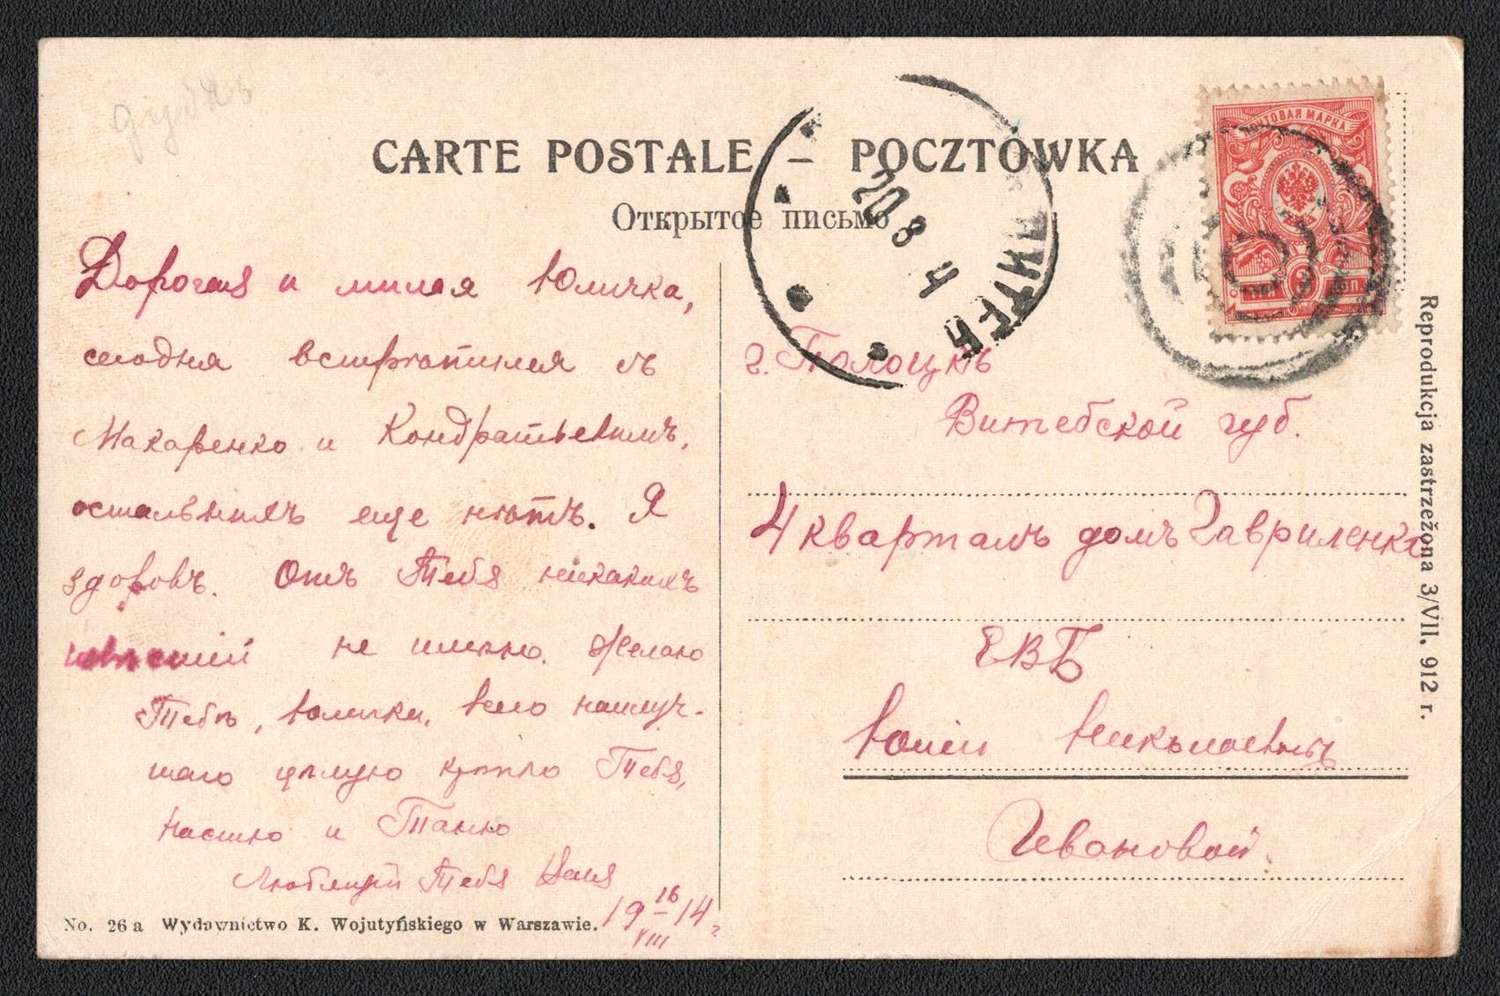 CARTE POSTALE – POCZTÓWKA
Открытое письмо
ПОЧТОВАЯ МАРКА
20 8 4
Дорогая и милая Юличка,
сегодня встрѣтился съ
Макаренко и Кондратьевымъ,
остальныхъ еще нѣтъ. Я
здоровъ. Отъ Тебя никакихъ
извѣстій не имѣю. Желаю
Тебѣ, Юлички, всего наилуч-
шаго цѣлую крѣпко Тебя,
Настю и Таню
Любящій Тебя
19 16/VIII 14 г.
г. Полоцкъ
Витебской губ.
4 кварталъ домъ Гавриленко
ЕВБ
Юліи Николаевнѣ
Ивановой.
No. 26 a Wydawnictwo K. Wojutyńskiego w Warszawie.
Reprodukcja zastrzeżona 3/VII. 912 r.